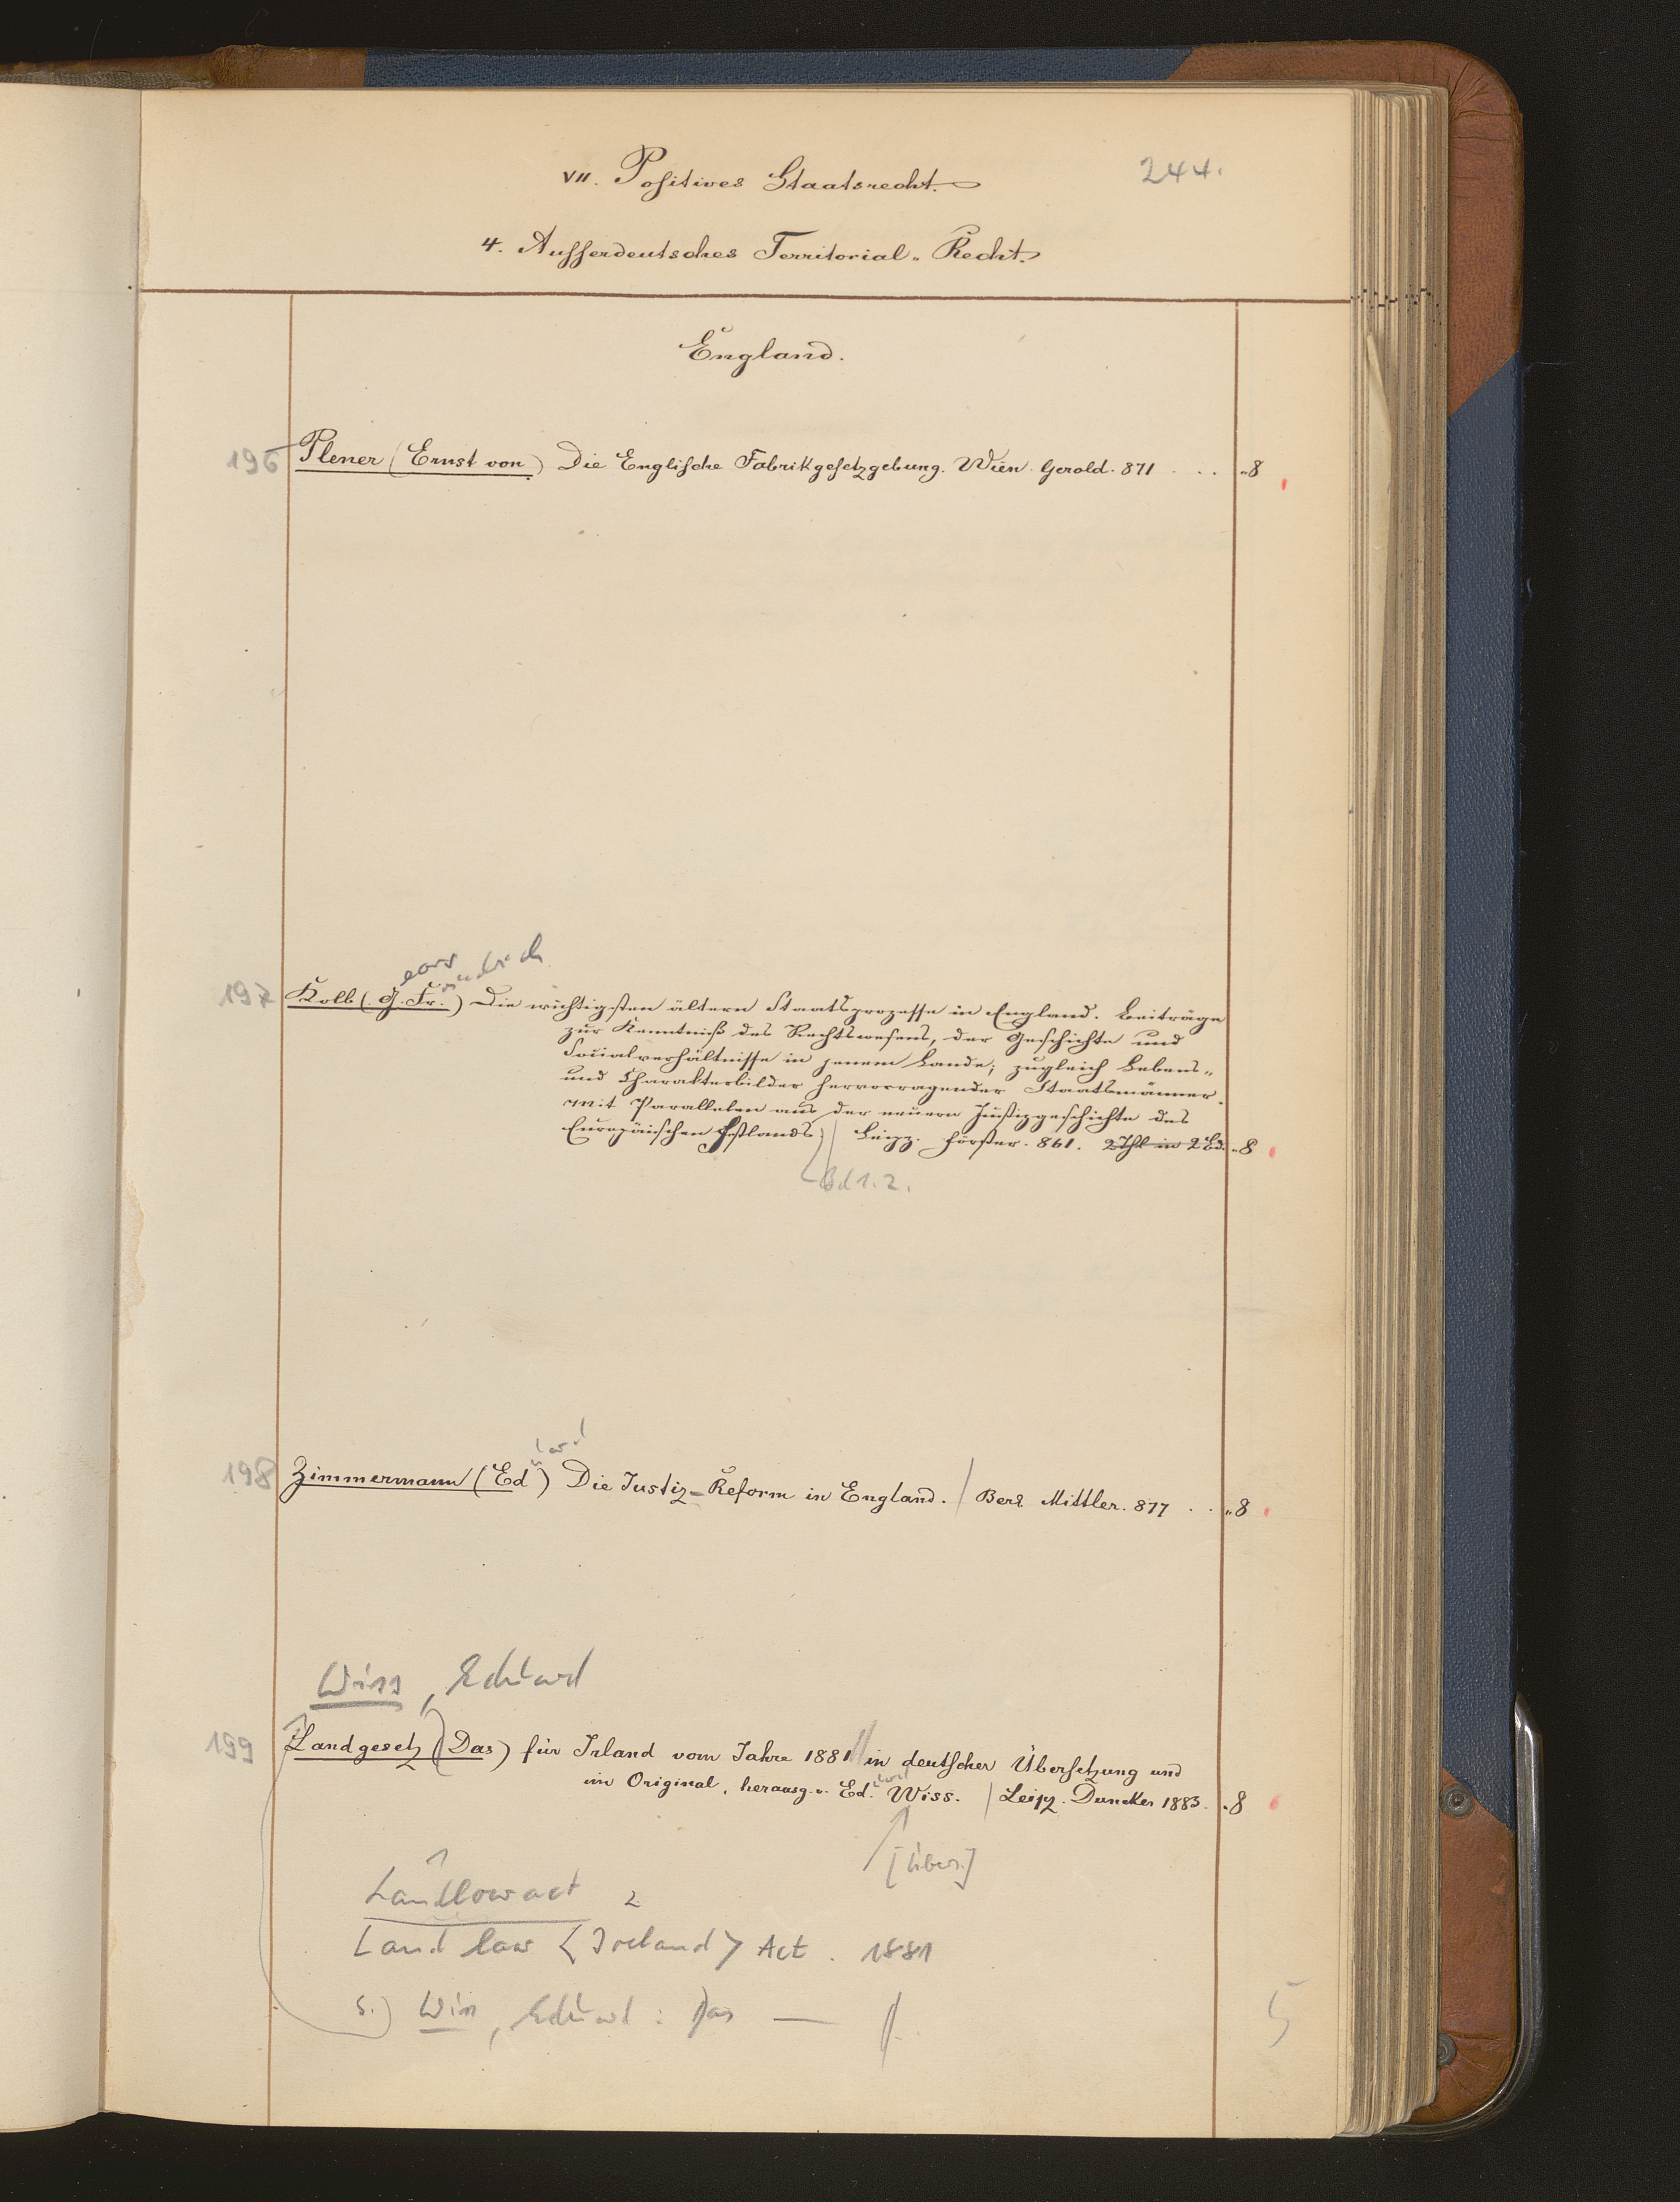 VII. Positives Staatsrecht.
244.
4. Aufserdeutsches Territorial-Recht.
England.
196 Plener (Ernst von) Die Englische Fabrikgesetzgebung. Wien. Gerold. 871 . . . „8
eorg iedrich
197 Kolb (G. Fr.) Die wichtigsten ältern Staatsprozesse in England. Beiträge
zur Kenntniß des Rechtswesens, der Geschichte und
Socialverhältnisse in jenem Lande; zugleich Lebens-
und Charakterbilder hervorragender Staatsmänner.
Mit Parallelen aus der neuern Justizgeschichte des
Europäischen Festlands / Leipz. Förster. 861. 2 Thl in 2 Bd. „8
Bd 1. 2.
uard
198 Zimmermann (Ed) Die Justiz-Reform in England. / Berl Mittler. 877 . . „8
Wiss, Eduard
199 Landgesetz (Das) für Irland vom Jahre 1881 // in deutscher Übersetzung und
uard
im Original, herausg. v. Ed. Wiss. / Leipz. Duncker 1883. „8
[Übers.]
Landlowact
Land law <Ireland> Act. 1881
s.) Wiss, Eduard: Das —
5